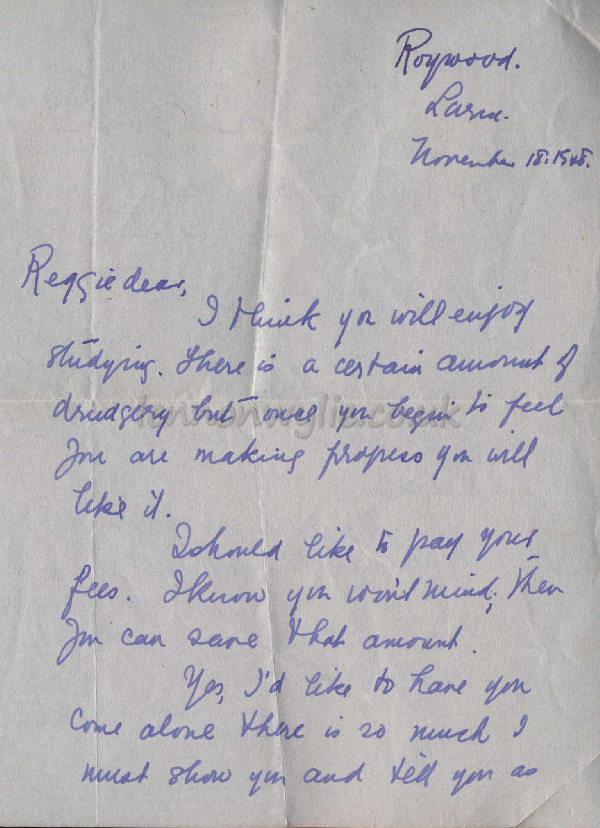 Roywood.
Larne.
November 18. 1948.
Reggie dear,
I think you will enjoy
studying. There is a certain amount of
drudgery but once you begin to feel
you are making progress you will
like it.
I should like to pay your
fees. I know you won't mind; then
you can save that amount.
Yes, I'd like to have you
come alone there is so much I
must show you and tell you as